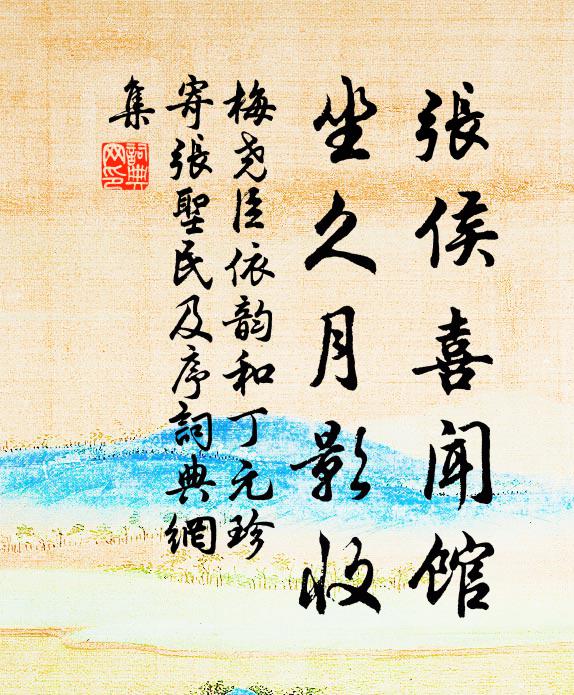 張侯喜聞館
坐久月影收
梅堯臣依韵和丁元珍
寄張聖民及序詞典網
集
詞典網印